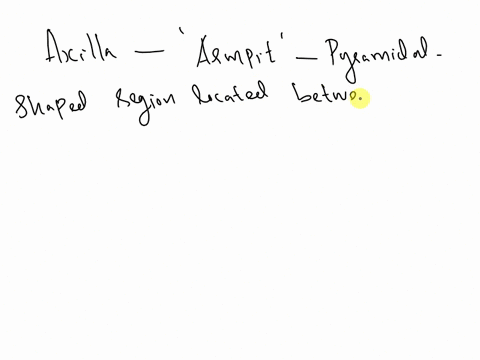 Axilla — 'Armpit' — Pyramidal -
shaped region located betwe